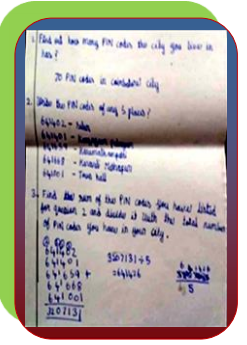 1. Find out how many PIN codes the city you live in
has?
70 PIN codes in coimbatore city
2. Write the PIN codes of any 5 places?
641402 - Sulur
641401 -
641659 - Karumathampatti
641668 -
641001 - Town hall
3. Find the sum of the PIN codes you have listed
for question 2 and divide it with the total number
of PIN codes you have in your city.
641402
641401
641659 +
641668
641001
3207131
3207131 ÷ 5
= 641426
5